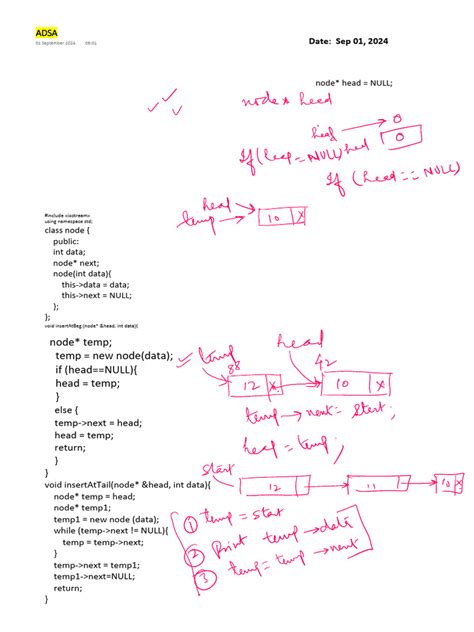 ADSA
01 September 2024 09:01
Date: Sep 01, 2024
node* head = NULL;
node* head
head 0
If (head = NULL) head 0
If (head == NULL)
head
temp
10 X
#include <iostream>
using namespace std;
class node {
public:
int data;
node* next;
node(int data){
this->data = data;
this->next = NULL;
};
};
void insertAtBeg (node* &head, int data){
node* temp;
temp = new node(data);
if (head==NULL){
head = temp;
}
else {
temp->next = head;
head = temp;
return;
}
}
temp head
88 42
12 X 10 X
temp → next = start,
head = temp;
start
12 11 10 X
void insertAtTail(node* &head, int data){
node* temp = head;
node* temp1;
temp1 = new node (data);
while (temp->next != NULL){
temp = temp->next;
}
temp->next = temp1;
temp1->next=NULL;
return;
}
① temp = start
② Print temp → data
③ temp = temp → next